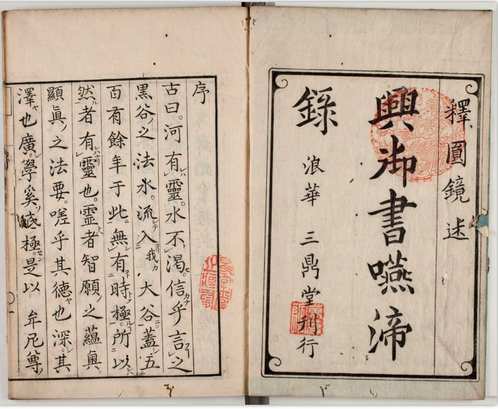 釋圓鏡述
興御書嚥渧
錄 浪華 三鼎堂刊行
序
古曰。河有靈水不渴信乎言之
黑谷之法水。流入我大谷蓋五
百有餘年于此無有時極所以
然者有靈也。靈者智願之蘊眞
顯眞之法要嗟乎其德也深其
澤也廣學奚底極是以 牟尼尊